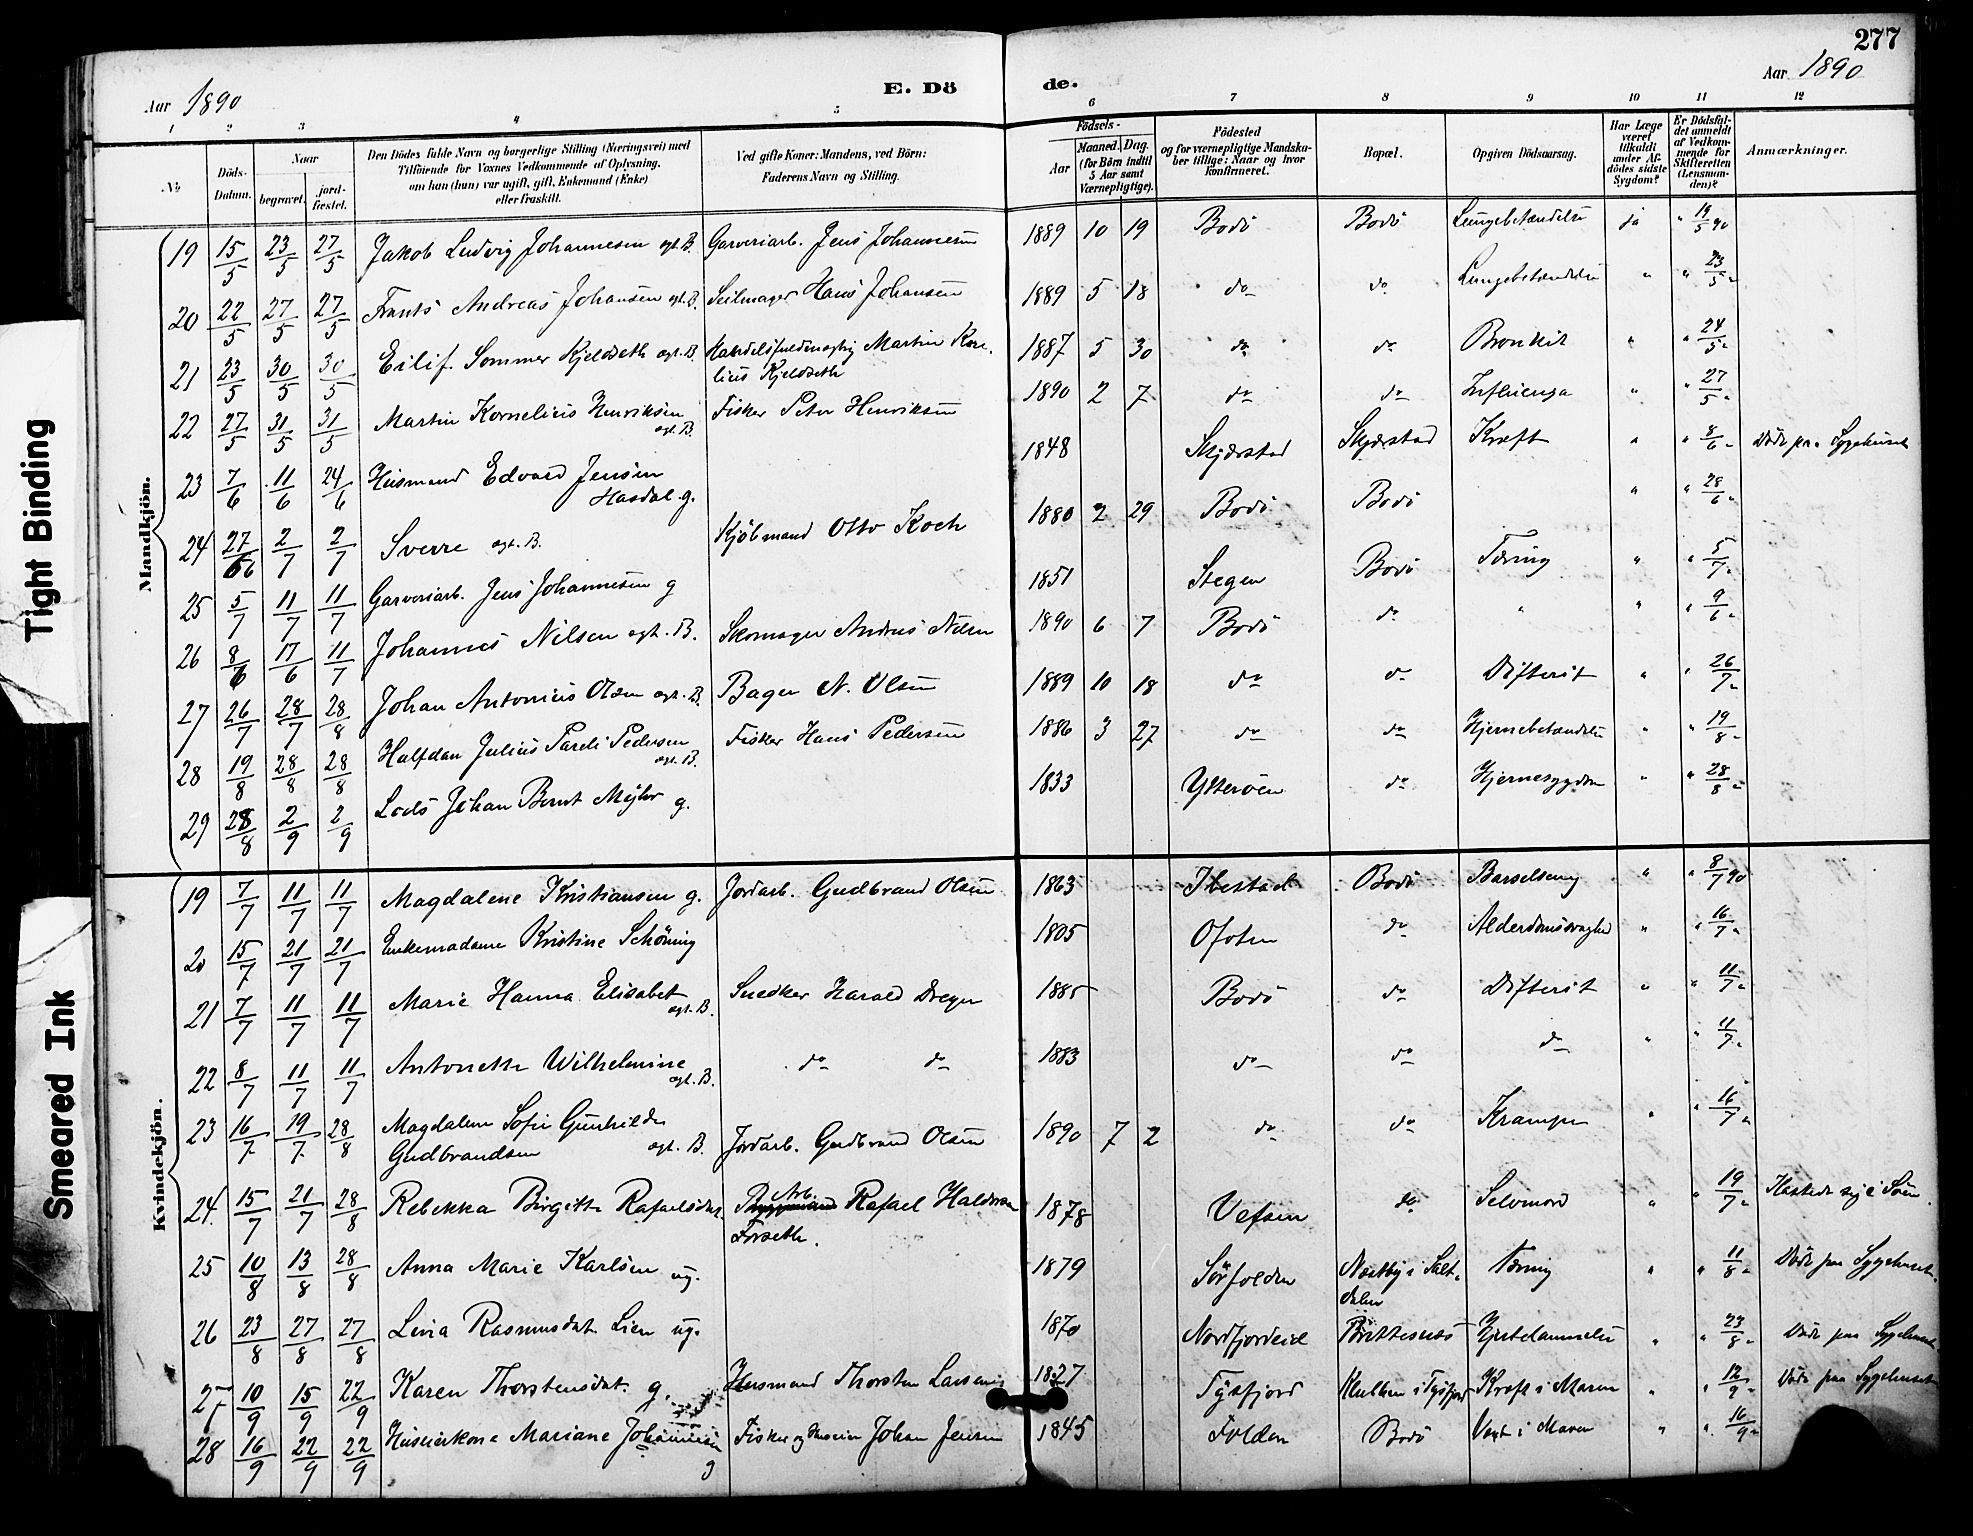 277
Aar 1890 E. Dö de. Aar 1890
1 2 3 4 5 6 7 8 9 10 11 12
No
Döds-Datum.
Naar
begravet.
jord-fæstet.
Den Dödes fulde Navn og borgerlige Stilling (Næringsvei) med
Tilföiende for Voxnes Vedkommende af Oplysning,
om han (hun) var ugift, gift, Enkemand (Enke)
eller fraskilt.
Ved gifte Koner: Mandens, ved Börn:
Faderens Navn og Stilling.
Födsels-
Aar
Maaned. Dag.
(for Börn indtil
5 Aar samt
Værnepligtige).
Födested
og for værnepligtige Mandska-
ber tillige: Naar og hvor
konfirmeret.
Bopæl.
Opgiven Dödsaarsag.
Har Læge
været
tilkaldt
under Af-
dödes sidste
Sygdom?
Er Dödsfal-
det anmeldt
af Vedkom-
mende for
Skifteretten
(Lensman-
den)?
Anmærkninger.
Mandkjön.
19 15/5 23/5 27/5 Jakob Ludvig Johannesen ægt. B. Garveriarb. Jens Johannesen 1889 10 19 Bodö Bodö Lungebetændelse ja " 19/5 90
20 22/5 27/5 27/5 Frants Andreas Johansen ægt. B. Seilmager Hans Johansen 1889 5 18 do do Lungebetændelse " " 23/5 "
21 23/5 30/5 30/5 Eilif Sommer Kjeldseth ægt. B. Handelsfuldmægtig Martin Kor-
nelius Kjeldseth 1887 5 30 do do Bronkit " " 24/5 "
22 27/5 31/5 31/5 Martin Kornelius Henriksen
ægt. B. Fisker Peter Henriksen 1890 2 7 do do Influenza " " 27/5 "
23 7/6 11/6 24/6 Husmand Edvard Jensen
Hasdal g. 1848 Skjærstad Skjærstad Kræft " " 8/6 " Døde paa Sygehuset
24 27/6 2/7 2/7 Sverre ægt. B. Kjöbmand Otto Koch 1880 2 29 Bodö Bodö " " 28/6 "
25 5/7 11/7 11/7 Garveriarb. Jens Johannesen g 1851 Stegen Bodö Tæring " " 5/7 "
26 8/6 17/6 11/7 Johannes Nilsen ægt. B. Skomager Andreas Nilsen 1890 6 7 Bodö do " " " 9/6 "
27 26/7 28/7 28/8 Johan Antonius Olsen ægt. B. Bager N. Olsen 1889 10 18 do do Difterit " " 26/7 "
28 19/8 28/8 28/8 Halfdan Julius Pareli Pedersen
ægt. B. Fisker Hans Pedersen 1886 3 27 do do Hjernebetændelse " " 19/8 "
29 28/8 2/9 2/9 Lods Johan Bernt Myhr g. 1833 Ytterøen do Hjernesygdom " " 28/8 "
Kvindekjön.
19 7/7 11/7 11/7 Magdalene Kristiansen g. Jordarb. Gudbrand Olsen 1863 Ibestad Bodö Barselseng " " 8/7 90
20 15/7 21/7 21/7 Enkemadame Kristine Schöning 1805 Ofoten do Alderdomssvaghed " " 16/7 "
21 7/7 11/7 11/7 Marie Hanna Elisabet
ægt. B. Snedker Harald Dreyer 1885 Bodö do Difterit " " 11/7 "
22 8/7 11/7 11/7 Antonette Wilhelmine
ægt. B. do do 1883 do do do " " 11/7 "
23 16/7 19/7 28/8 Magdalene Sofie Gunhilde
Gudbrandsen ægt. B. Jordarb. Gudbrand Olsen 1890 7 2 do do Kramper " " 16/7 "
24. 15/7 21/7 28/8 Rebekka Birgitte Rafaelsdat. Arb. Rafael Haldorsen
Forseth. 1878 Vefsen do Selvmord " " 19/7 " Kastede sig i Søen
25 10/8 13/8 28/8 Anna Marie Karlsen ug. 1879 Sörfolden Næstby i Salt-
dalen Tæring " " 11/8 " Døde paa Sygehuset
26 23/8 27/8 27/8 Lina Rasmusdat. Lien ug. 1870 Nordfjordeid Hjertelammelse " " 23/8 " Døde paa Sygehuset
27 10/9 15/9 22/9 Karen Thorstensdat. g. Husmand Thorsten Larsen 1827 Tysfjord Klubben i Tysfjord Kræft i Maven " " 12/9 " Døde paa Sygehuset
28 16/9 22/9 22/9 Huseierkone Mariane Johannesen
g Fisker og Huseier Johan Jensen 1845 Folden Bodö Vext i Maven " " 16/9 "
Tight Binding
Smeared Ink